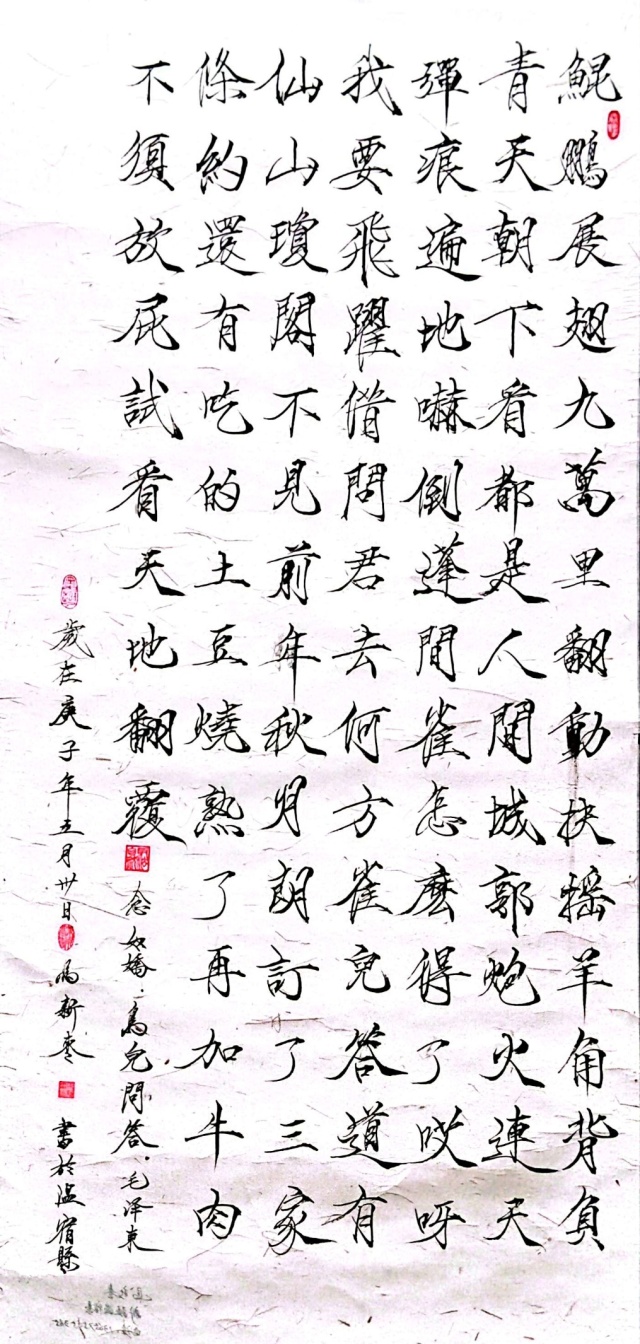 鯤鵬展翅九萬里翻動扶搖羊角背負
青天朝下看都是人間城郭炮火連天
彈痕遍地嚇倒蓬間雀怎麼得了哎呀
我要飛躍借問君去何方雀兒答道有
仙山瓊閣不見前年秋月朗訂了三家
條約還有吃的土豆燒熟了再加牛肉
不須放屁試看天地翻覆
念奴嬌·鳥兒問答·毛泽東
歲在庚子年五月卅日 新 書於温宿縣